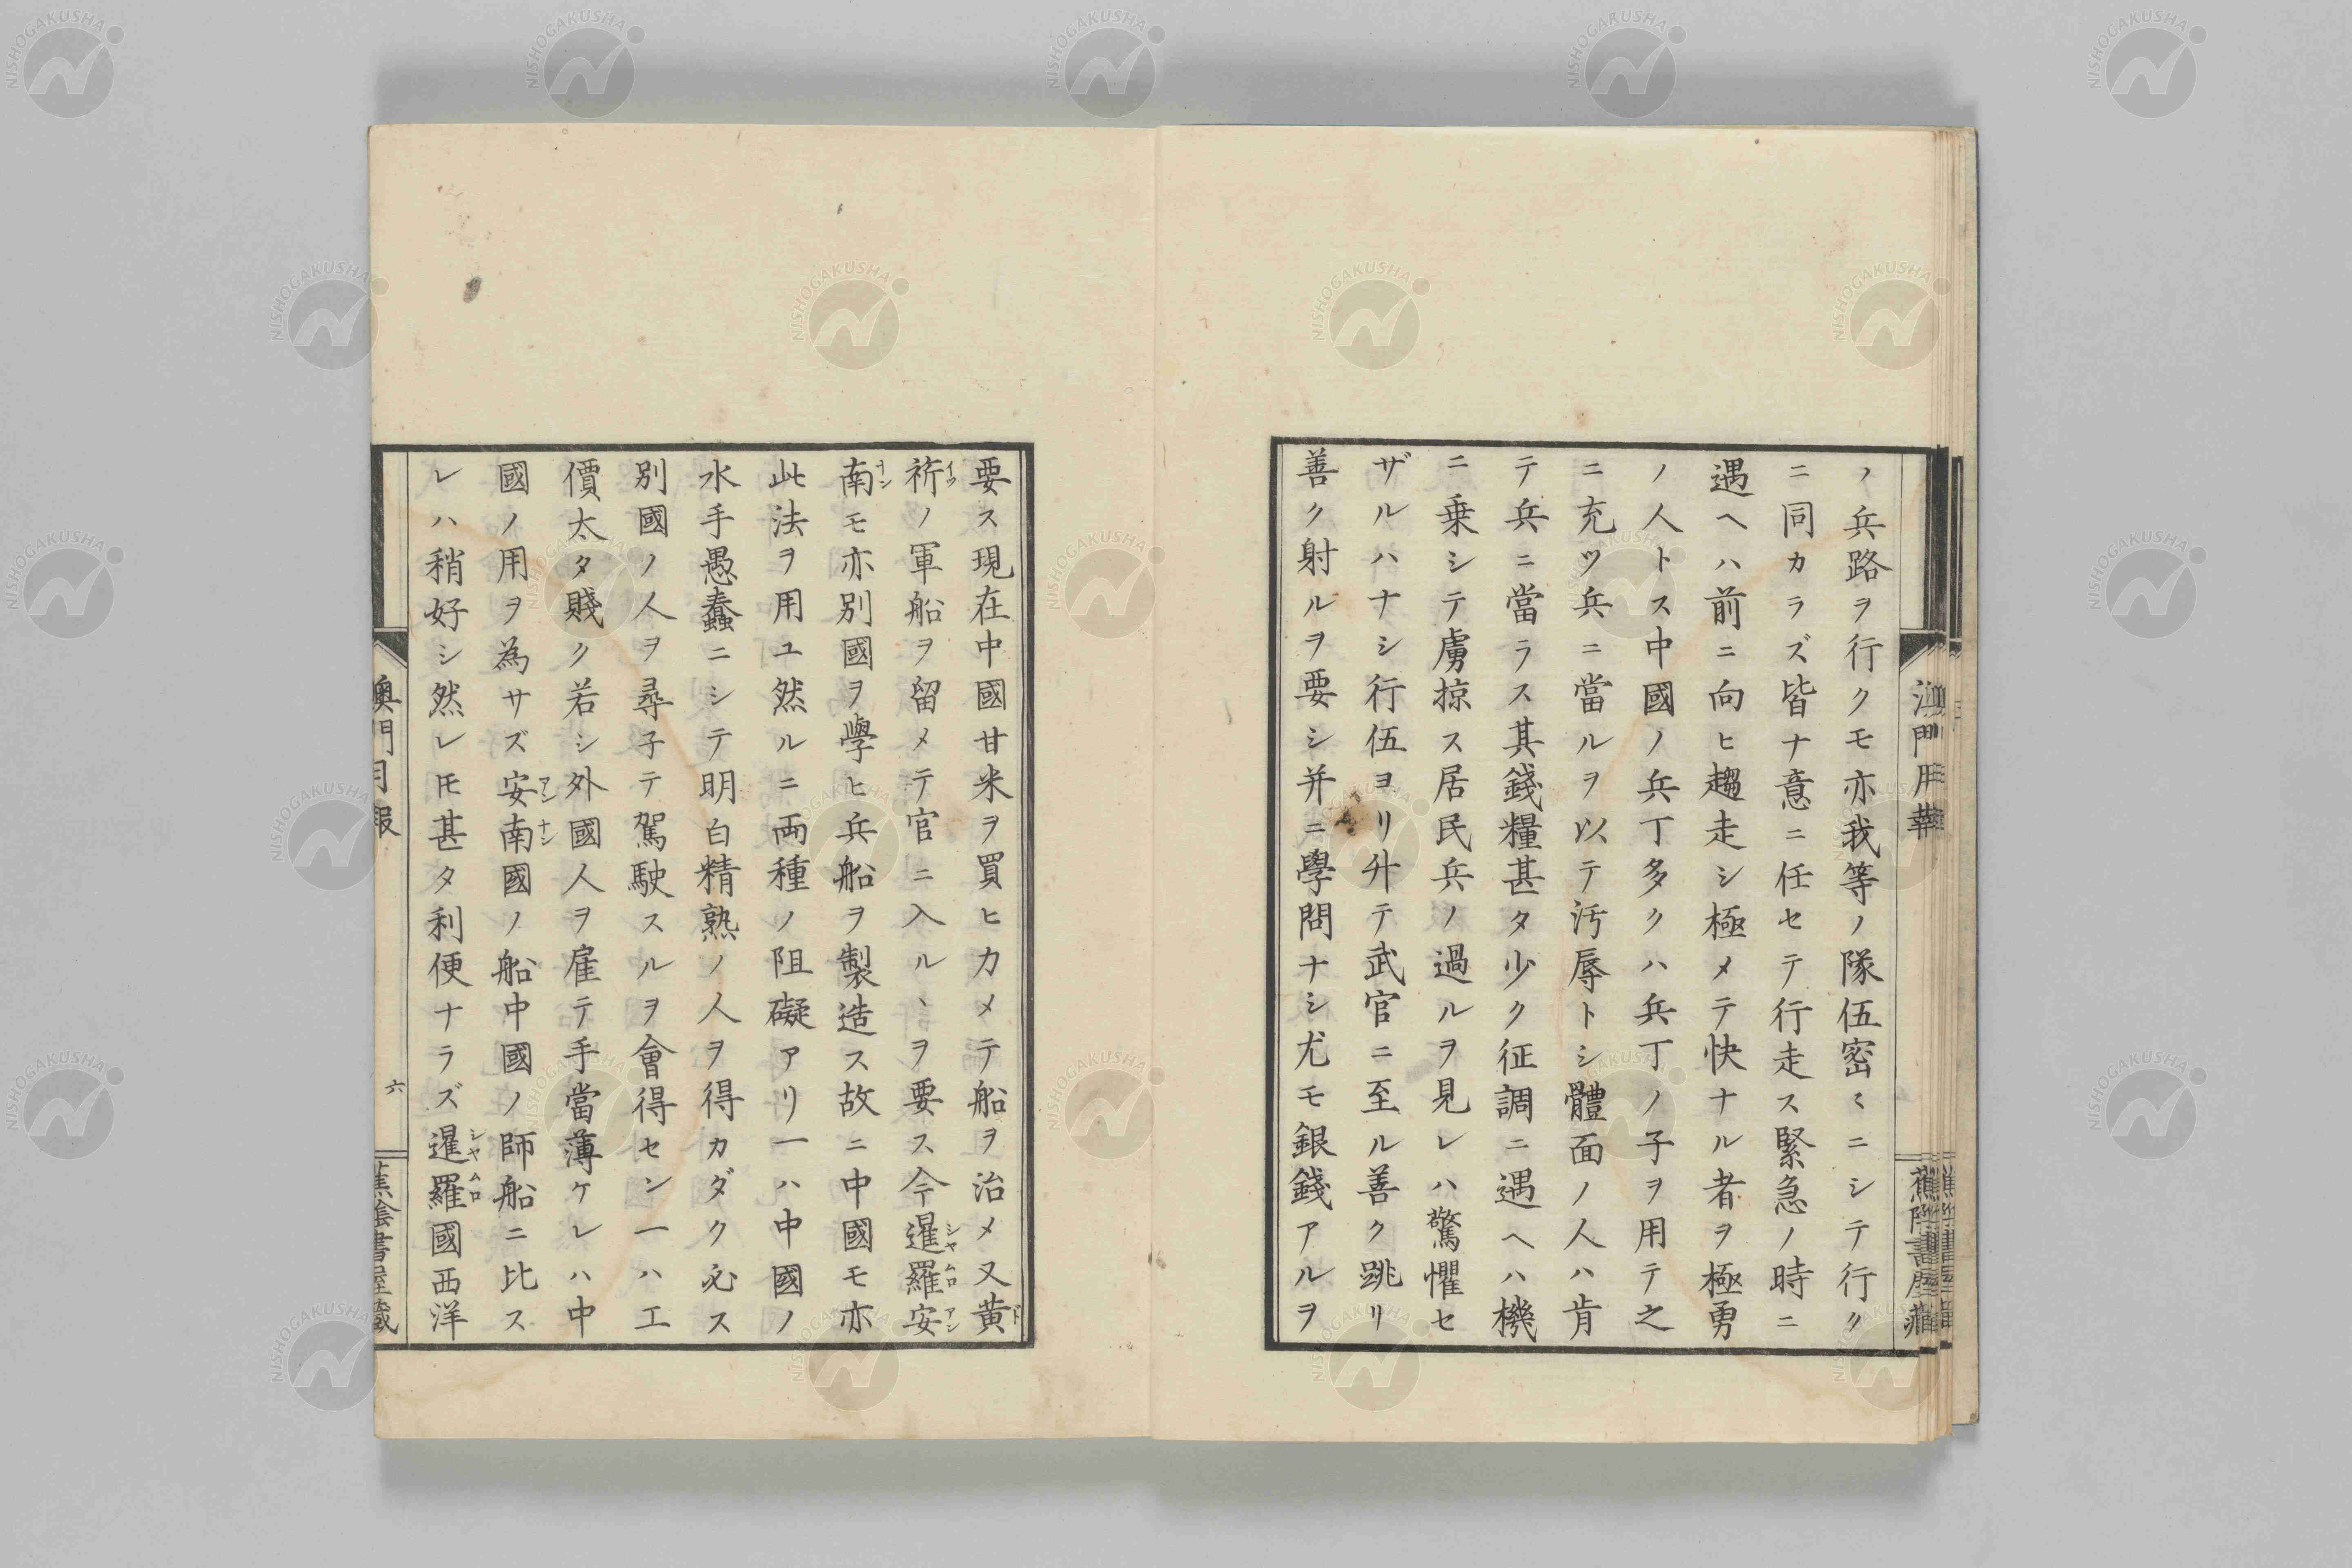 ノ兵路ヲ行クモ亦我等ノ隊伍密〻ニシテ行ク
ニ同カラズ皆ナ意ニ任セテ行走ス緊急ノ時ニ
遇ヘハ前ニ向ヒ趨走シ極メテ快ナル者ヲ極勇
ノ人トス中國ノ兵丁多クハ兵丁ノ子ヲ用テ之
ニ充ツ兵ニ當ルヲ以テ汚辱トシ體面ノ人ハ肯
テ兵ニ當ラス其錢糧甚タ少ク征調ニ遇ヘハ機
ニ乗シテ虜掠ス居民兵ノ過ルヲ見レハ驚懼セ
ザルハナシ行伍ヨリ升テ武官ニ至ル善ク跳リ
善ク射ルヲ要シ并ニ學問ナシ尤モ銀錢アルヲ
要ス現在中國甘米ヲ買ヒカメテ船ヲ治メ又黄
旂ノ軍船ヲ留メテ官ニ入ル、ヲ要ス今暹羅安
南モ亦別國ヲ學ヒ兵船ヲ製造ス故ニ中國モ亦
此法ヲ用ユ然ルニ両種ノ阻礙アリ一ハ中國ノ
水手愚蠢ニシテ明白精熟ノ人ヲ得カダク必ス
別國ノ人ヲ尋子テ駕駛スルヲ會得セン一ハ工
價太タ賤ク若シ外國人ヲ雇テ手當薄ケレハ中
國ノ用ヲ為サズ安南國ノ船中國ノ師船ニ比ス
レハ稍好シ然レ𪜈甚タ利便ナラズ暹羅國西洋
澳門月報
六
蕉陰書屋藏
NISHOGAKUSHA